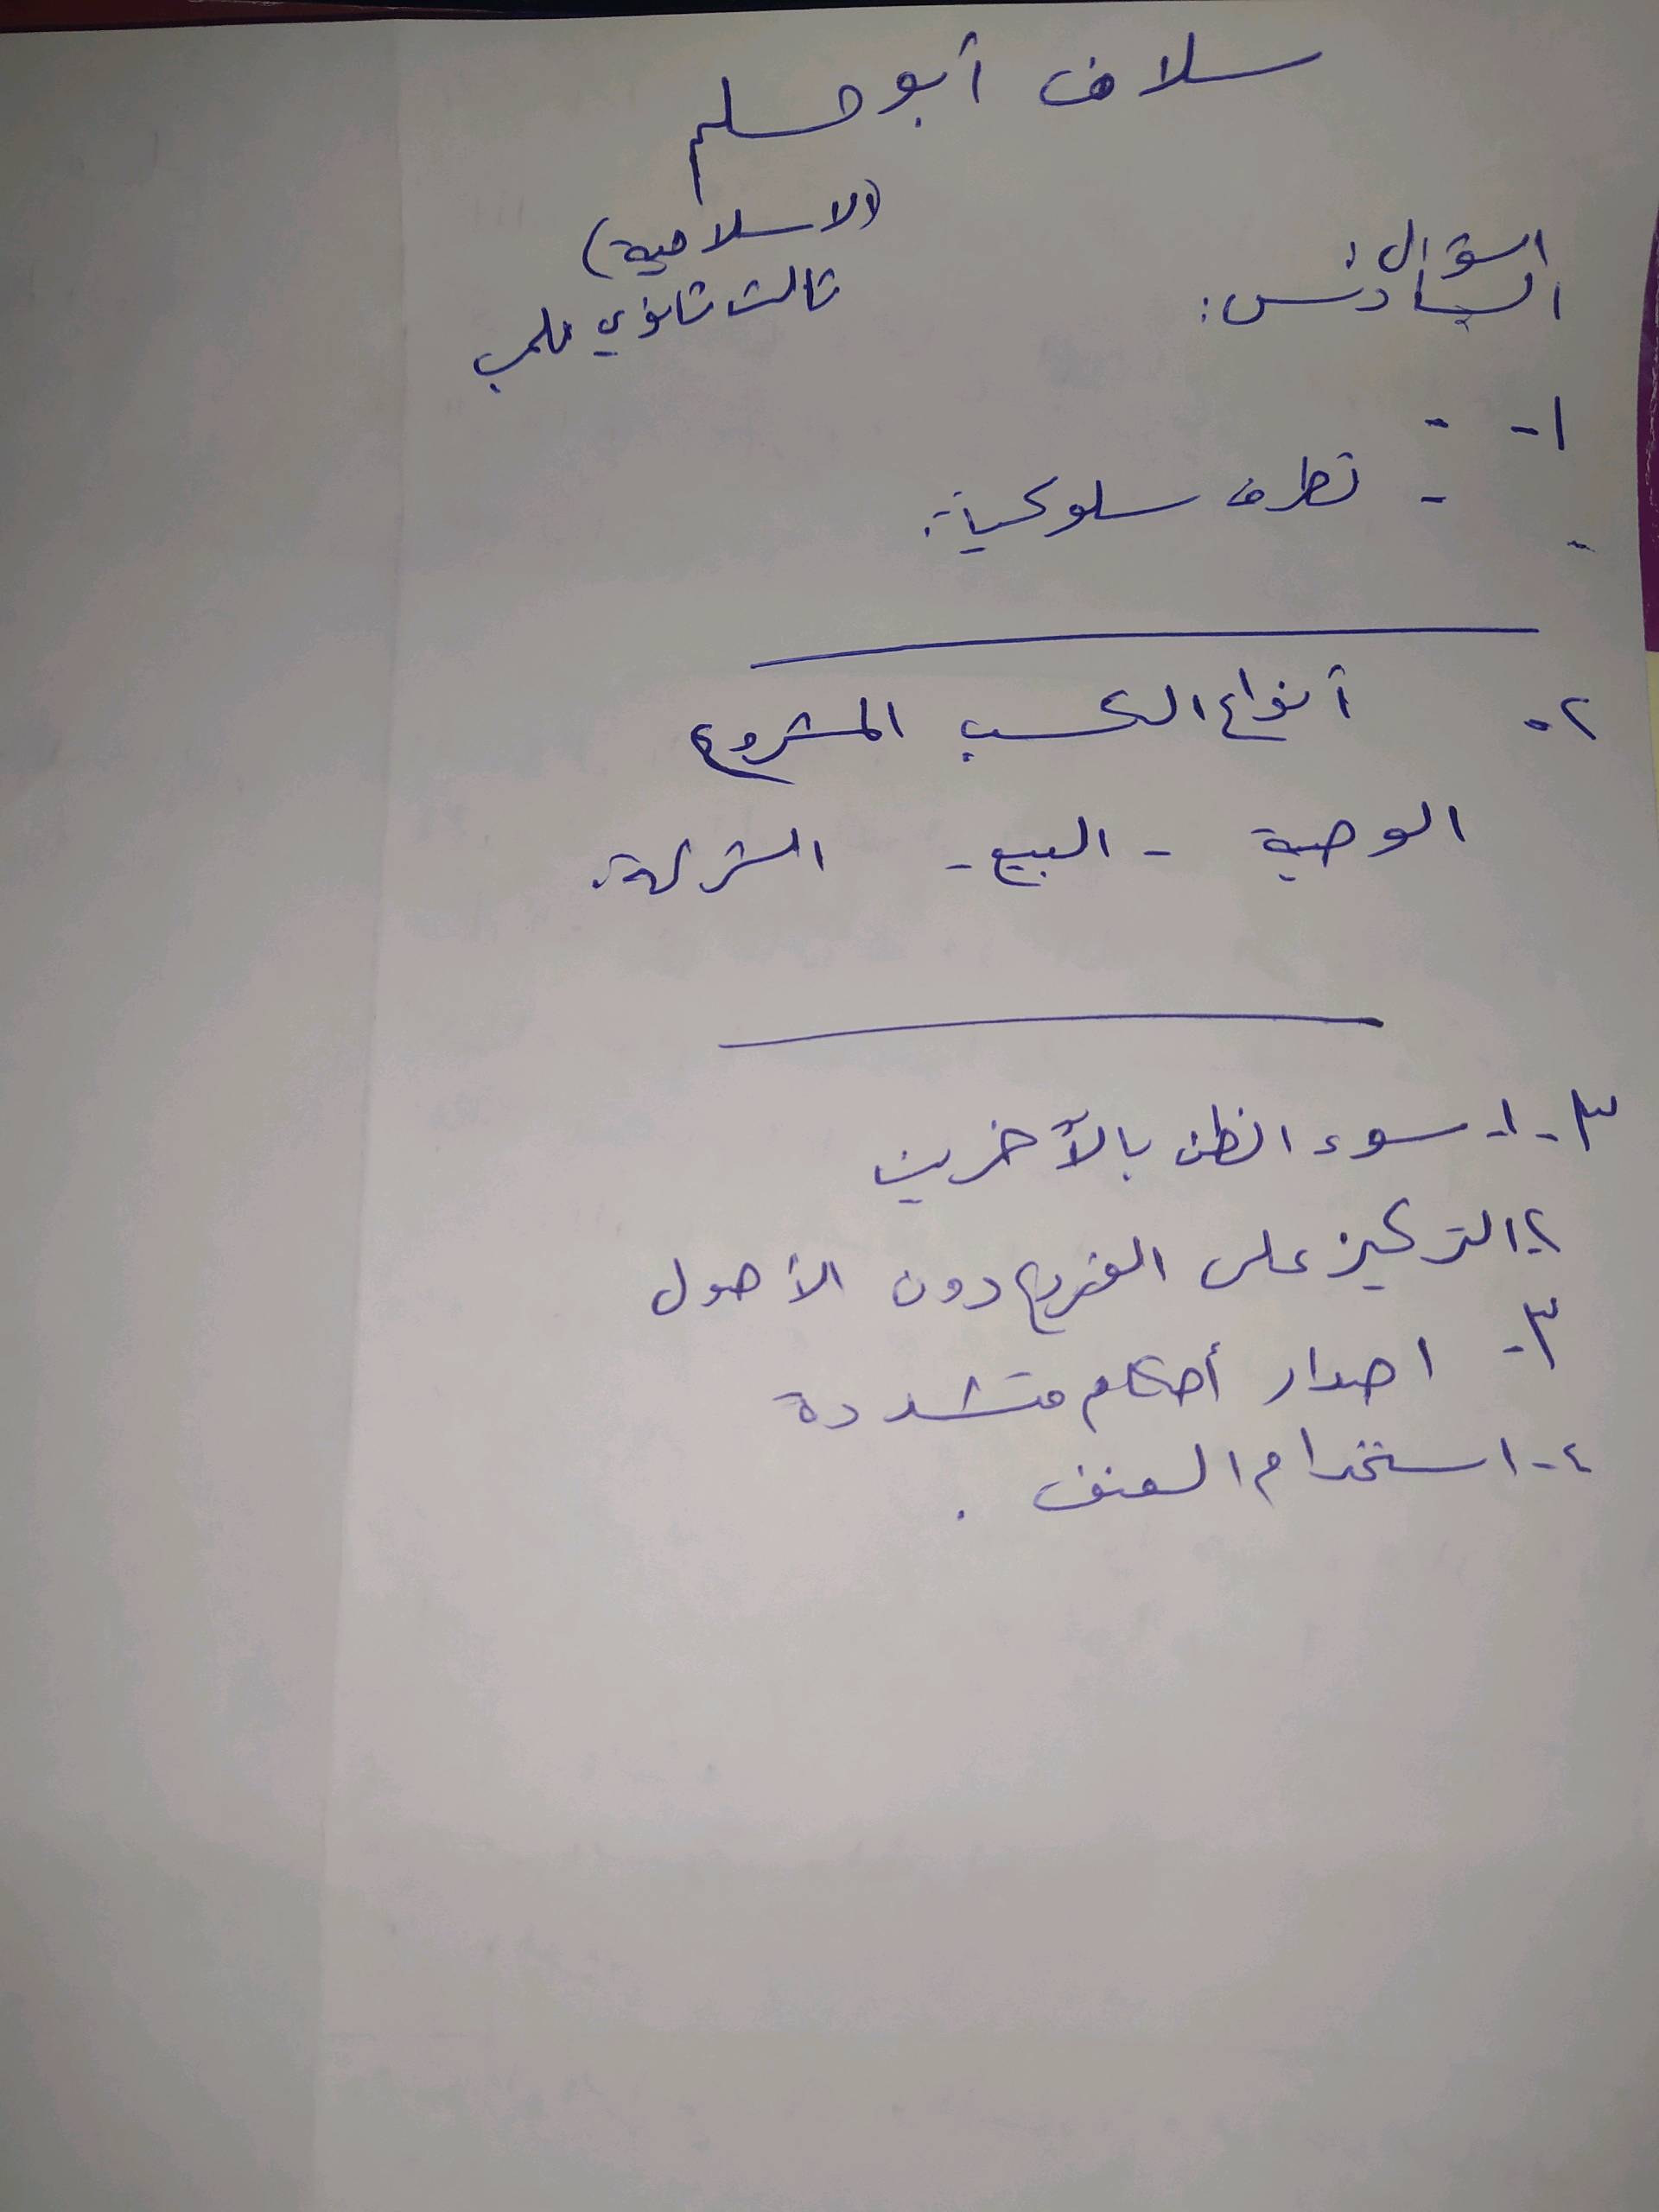 سلاف أبو حسلم
(الاسلامية)
ثالث ثانوي علمي
السؤال:
السادس:
١- -
- تطرف سلوكيات.
٢. أنواع الكسب المشروع
الوصية - البيع - الشركة.
٣-١- سوء الظن بالآخرين
٢- التركيز على الفروع دون الأصول
٣- اصدار أحكام متشددة
٤- استخدام العنف.